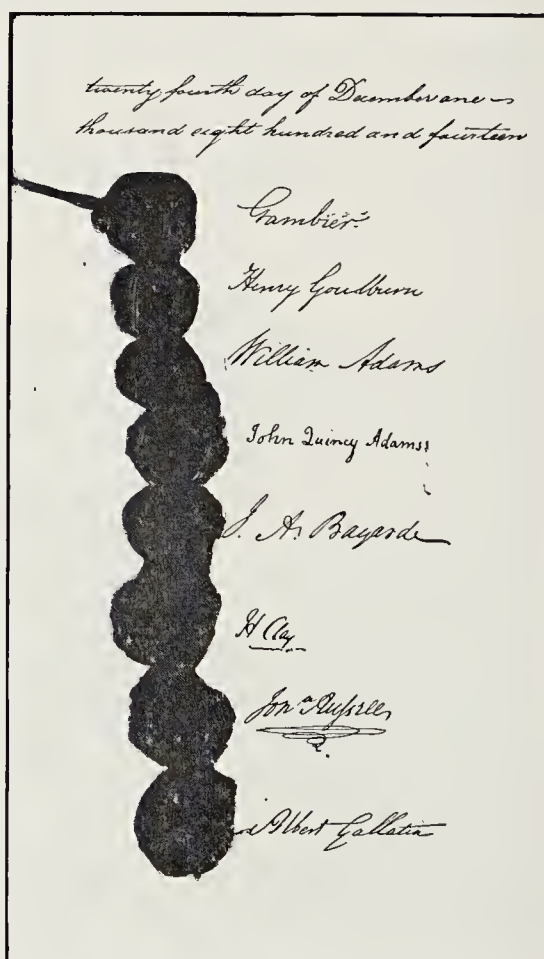 twenty fourth day of December one
thousand eight hundred and fourteen
Gambier.
Henry Goulburn
William Adams
John Quincy Adams
J. A. Bayard
H Clay
Jon.a Russell
Albert Gallatin